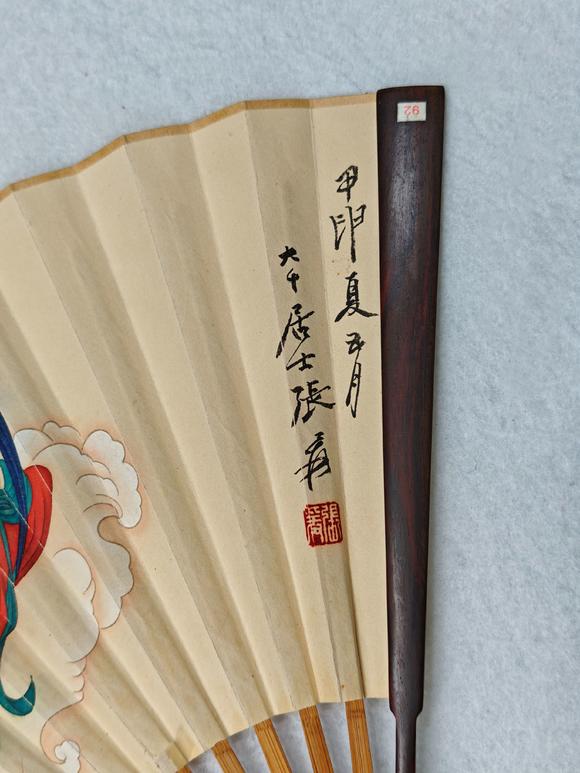 92
甲申夏五月
大千居士張爰
張爰